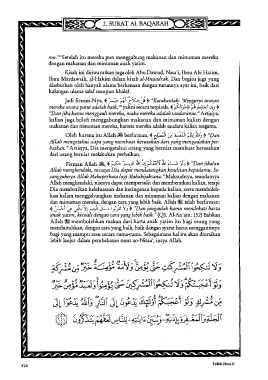 2. SURAT AL BAQARAH
me." Setelah itu mereka pun menggabung makanan dan minuman mereka
dengan makanan dan minuman anak yatim.
Kisah ini diriwayatkan juga oleh Abu Dawud, Nasa'i, Ibnu Abi Hatim,
Ibnu Mardawaih, al-Hakim dalam kitab al-Mustadrak. Dan begitu juga yang
disebutkan oleh banyak ulama berkenaan dengan turunnya ayat ini, baik dari
kalangan ulama salaf maupun khalaf.
Jadi firman-Nya, ﴿ قُلْ إِصْلَاحٌ لَّهُمْ خَيْرٌ ﴾ "Katakanlah: 'Mengurus urusan
mereka secara patut adalah baik,'" yakni secara terpisah.
"Dan jika kamu menggauli mereka, maka mereka adalah saudaramu." Artinya,
kalian juga boleh menggabungkan makanan dan minuman kalian dengan
makanan dan minuman mereka, karena mereka adalah saudara kalian seagama.
Oleh karena itu Allah berfirman, "Dan
Allah mengetahui siapa yang membuat kerusakan dari yang mengadakan per-
baikan." Artinya, Dia mengetahui orang yang berniat membuat kerusakan
dari orang berniat melakukan perbaikan.
Firman Allah "Dan jikalau
Allah menghendaki, niscaya Dia dapat mendatangkan kesulitan kepadamu. Se-
sungguhnya Allah Mahaperkasa lagi Mahabijaksana." Maksudnya,
Allah menghendaki, niscaya dapat mempersulit dan memberatkan kalian, tetapi
Dia memberikan keleluasaan dan keringanan kepada kalian, serta memboleh-
kan kalian menggabungkan makanan dan minuman kalian dengan makanan
dan minuman mereka, dengan cara yang lebih baik. Allah telah berfirman:
"Dan janganlah kamu mendekati harta
anak yatim, kecuali dengan cara yang lebih baik." (QS. Al-An'aam: 152) Bahkan
Allah membolehkan makan dari harta anak yatim itu bagi orang yang
membutuhkan, dengan cara yang baik, baik dengan syarat harus menggantinya
bagi yang mampu atau secara cuma-cuma. Sebagaimana hal itu akan diuraikan
lebih lanjut dalam pembahasan surat an-Nisaa', insya Allah.
وَلَا تَنكِحُوا۟ ٱلْمُشْرِكَٰتِ حَتَّىٰ يُؤْمِنَّ وَلَأَمَةٌ مُّؤْمِنَةٌ خَيْرٌ مِّن مُّشْرِكَةٍ
وَلَوْ أَعْجَبَتْكُمْ وَلَا تُنكِحُوا۟ ٱلْمُشْرِكِينَ حَتَّىٰ يُؤْمِنُوا۟ وَلَعَبْدٌ مُّؤْمِنٌ خَيْرٌ
مِّن مُّشْرِكٍ وَلَوْ أَعْجَبَكُمْ أُو۟لَٰٓئِكَ يَدْعُونَ إِلَى ٱلنَّارِ وَٱللَّهُ يَدْعُوٓا۟ إِلَى
ٱلْجَنَّةِ وَٱلْمَغْفِرَةِ بِإِذْنِهِۦ وَيُبَيِّنُ ءَايَٰتِهِۦ لِلنَّاسِ لَعَلَّهُمْ يَتَذَكَّرُونَ